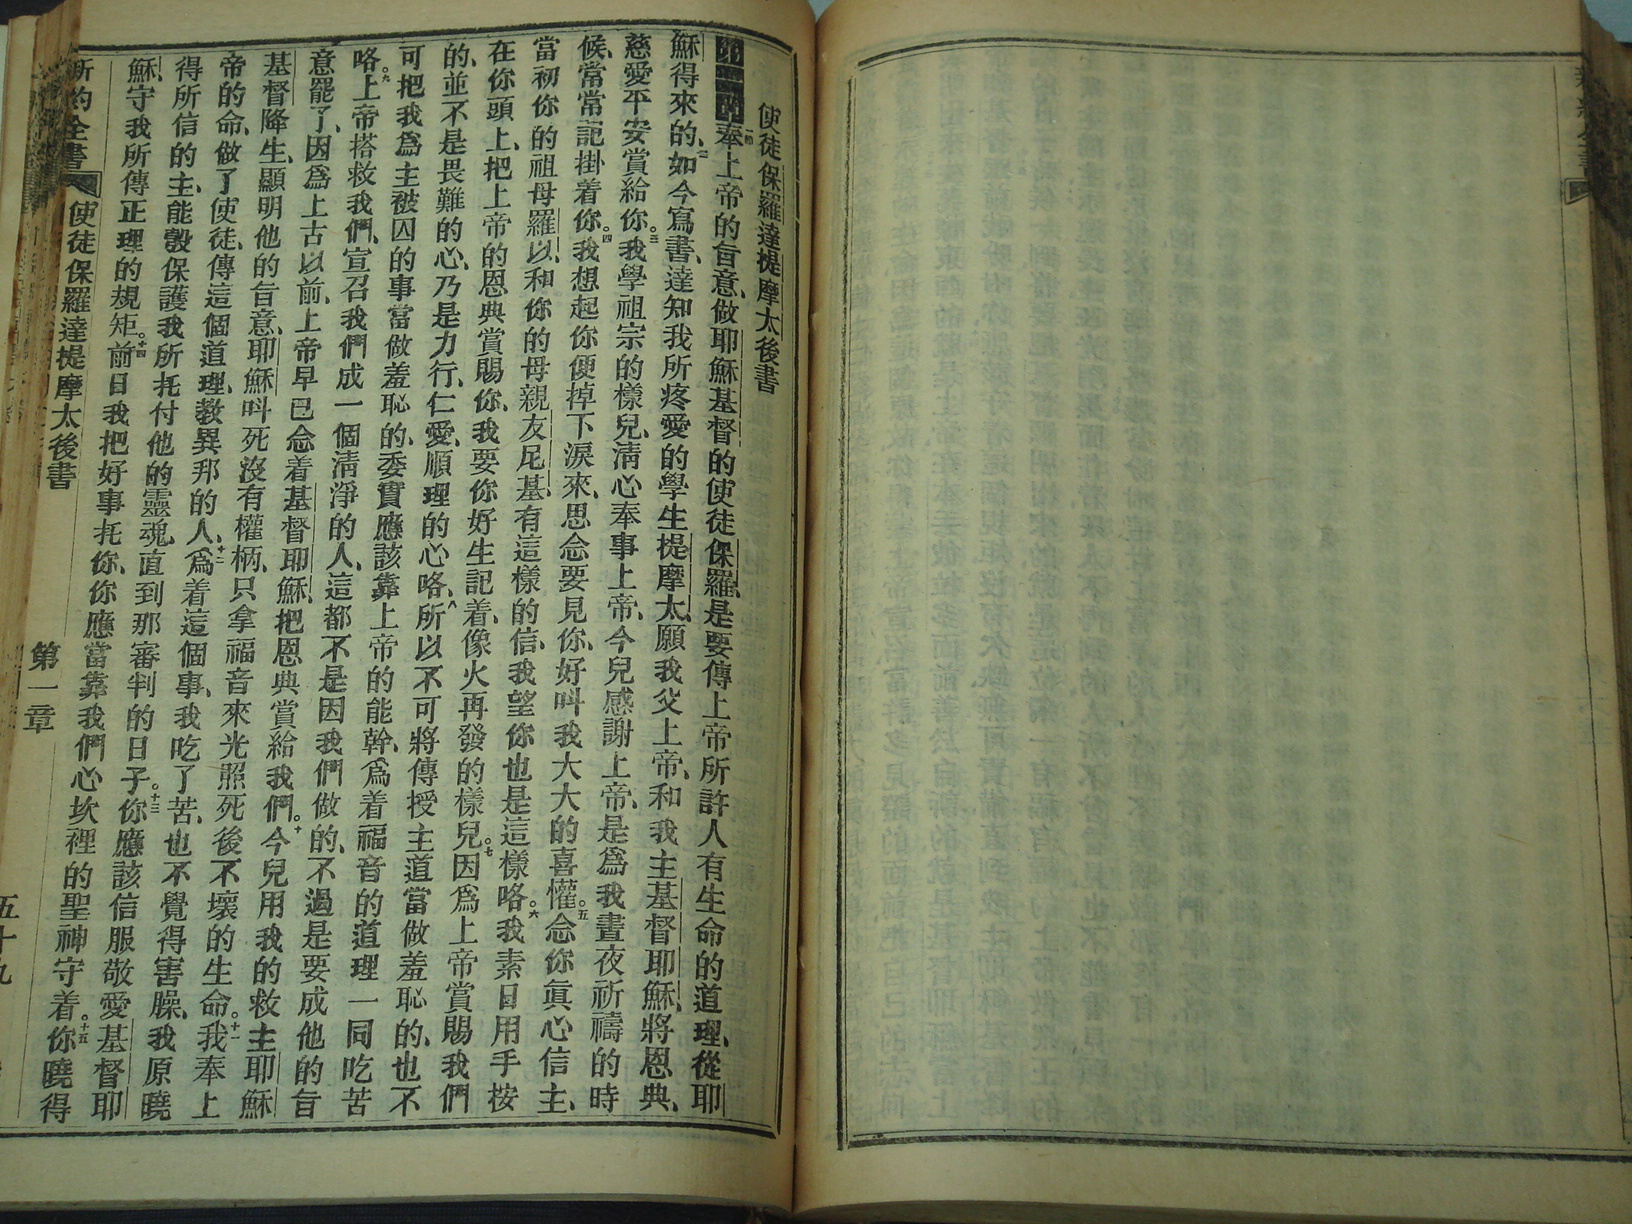 使徒保羅達提摩太後書
第一章一節奉上帝的旨意、做耶穌基督的使徒保羅、是要傳上帝所許人有生命的道理、從耶
穌得來的、二如今寫書、達知我所疼愛的學生提摩太、願我父上帝、和我主基督耶穌、將恩典、
慈愛平安賞給你。三我學祖宗的樣兒、淸心奉事上帝、今兒感謝上帝、是爲我晝夜祈禱的時
候、常常記掛着你。四我想起你便掉下淚來、思念要見你、好叫我大大的喜懽。五念你眞心信主、
當初你的祖母羅以、和你的母親友尼基、有這樣的信、我望你也是這樣咯。六我素日用手按
在你頭上、把上帝的恩典賞賜你、我要你好生記着、像火再發的樣兒。七因爲上帝賞賜我們
的、並不是畏難的心、乃是力行、仁愛、順理的心咯、八所以不可將傳授主道當做羞恥的、也不
可把我爲主被囚的事當做羞恥的、委實應該靠上帝的能幹、爲着福音的道理一同吃苦
咯。九上帝搭救我們、宣召我們成一個淸淨的人、這都不是因我們做的、不過是要成他的旨
意罷了、因爲上古以前、上帝早已念着基督耶穌、把恩典賞給我們。十今兒用我的救主耶穌
基督降生、顯明他的旨意、耶穌呌死沒有權柄、只拿福音來光照死後不壞的生命。十一我奉上
帝的命、做了使徒、傳這個道理、敎異邦的人、十二爲着這個事、我吃了苦、也不覺得害臊、我原曉
得所信的主、能彀保護我所托付他的靈魂、直到那審判的日子。十三你應該信服敬愛基督耶
穌、守我所傳正理的規矩。十四前日我把好事托你、你應當靠我們心坎裡的聖神守着。十五你曉得
新約全書 使徒保羅達提摩太後書 第一章 五十九